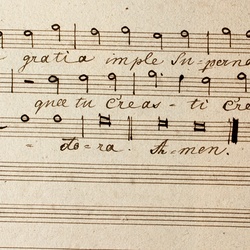 gratia imple Su-perna
quee tu Creas-ti Cre
- do=ra. A-men.